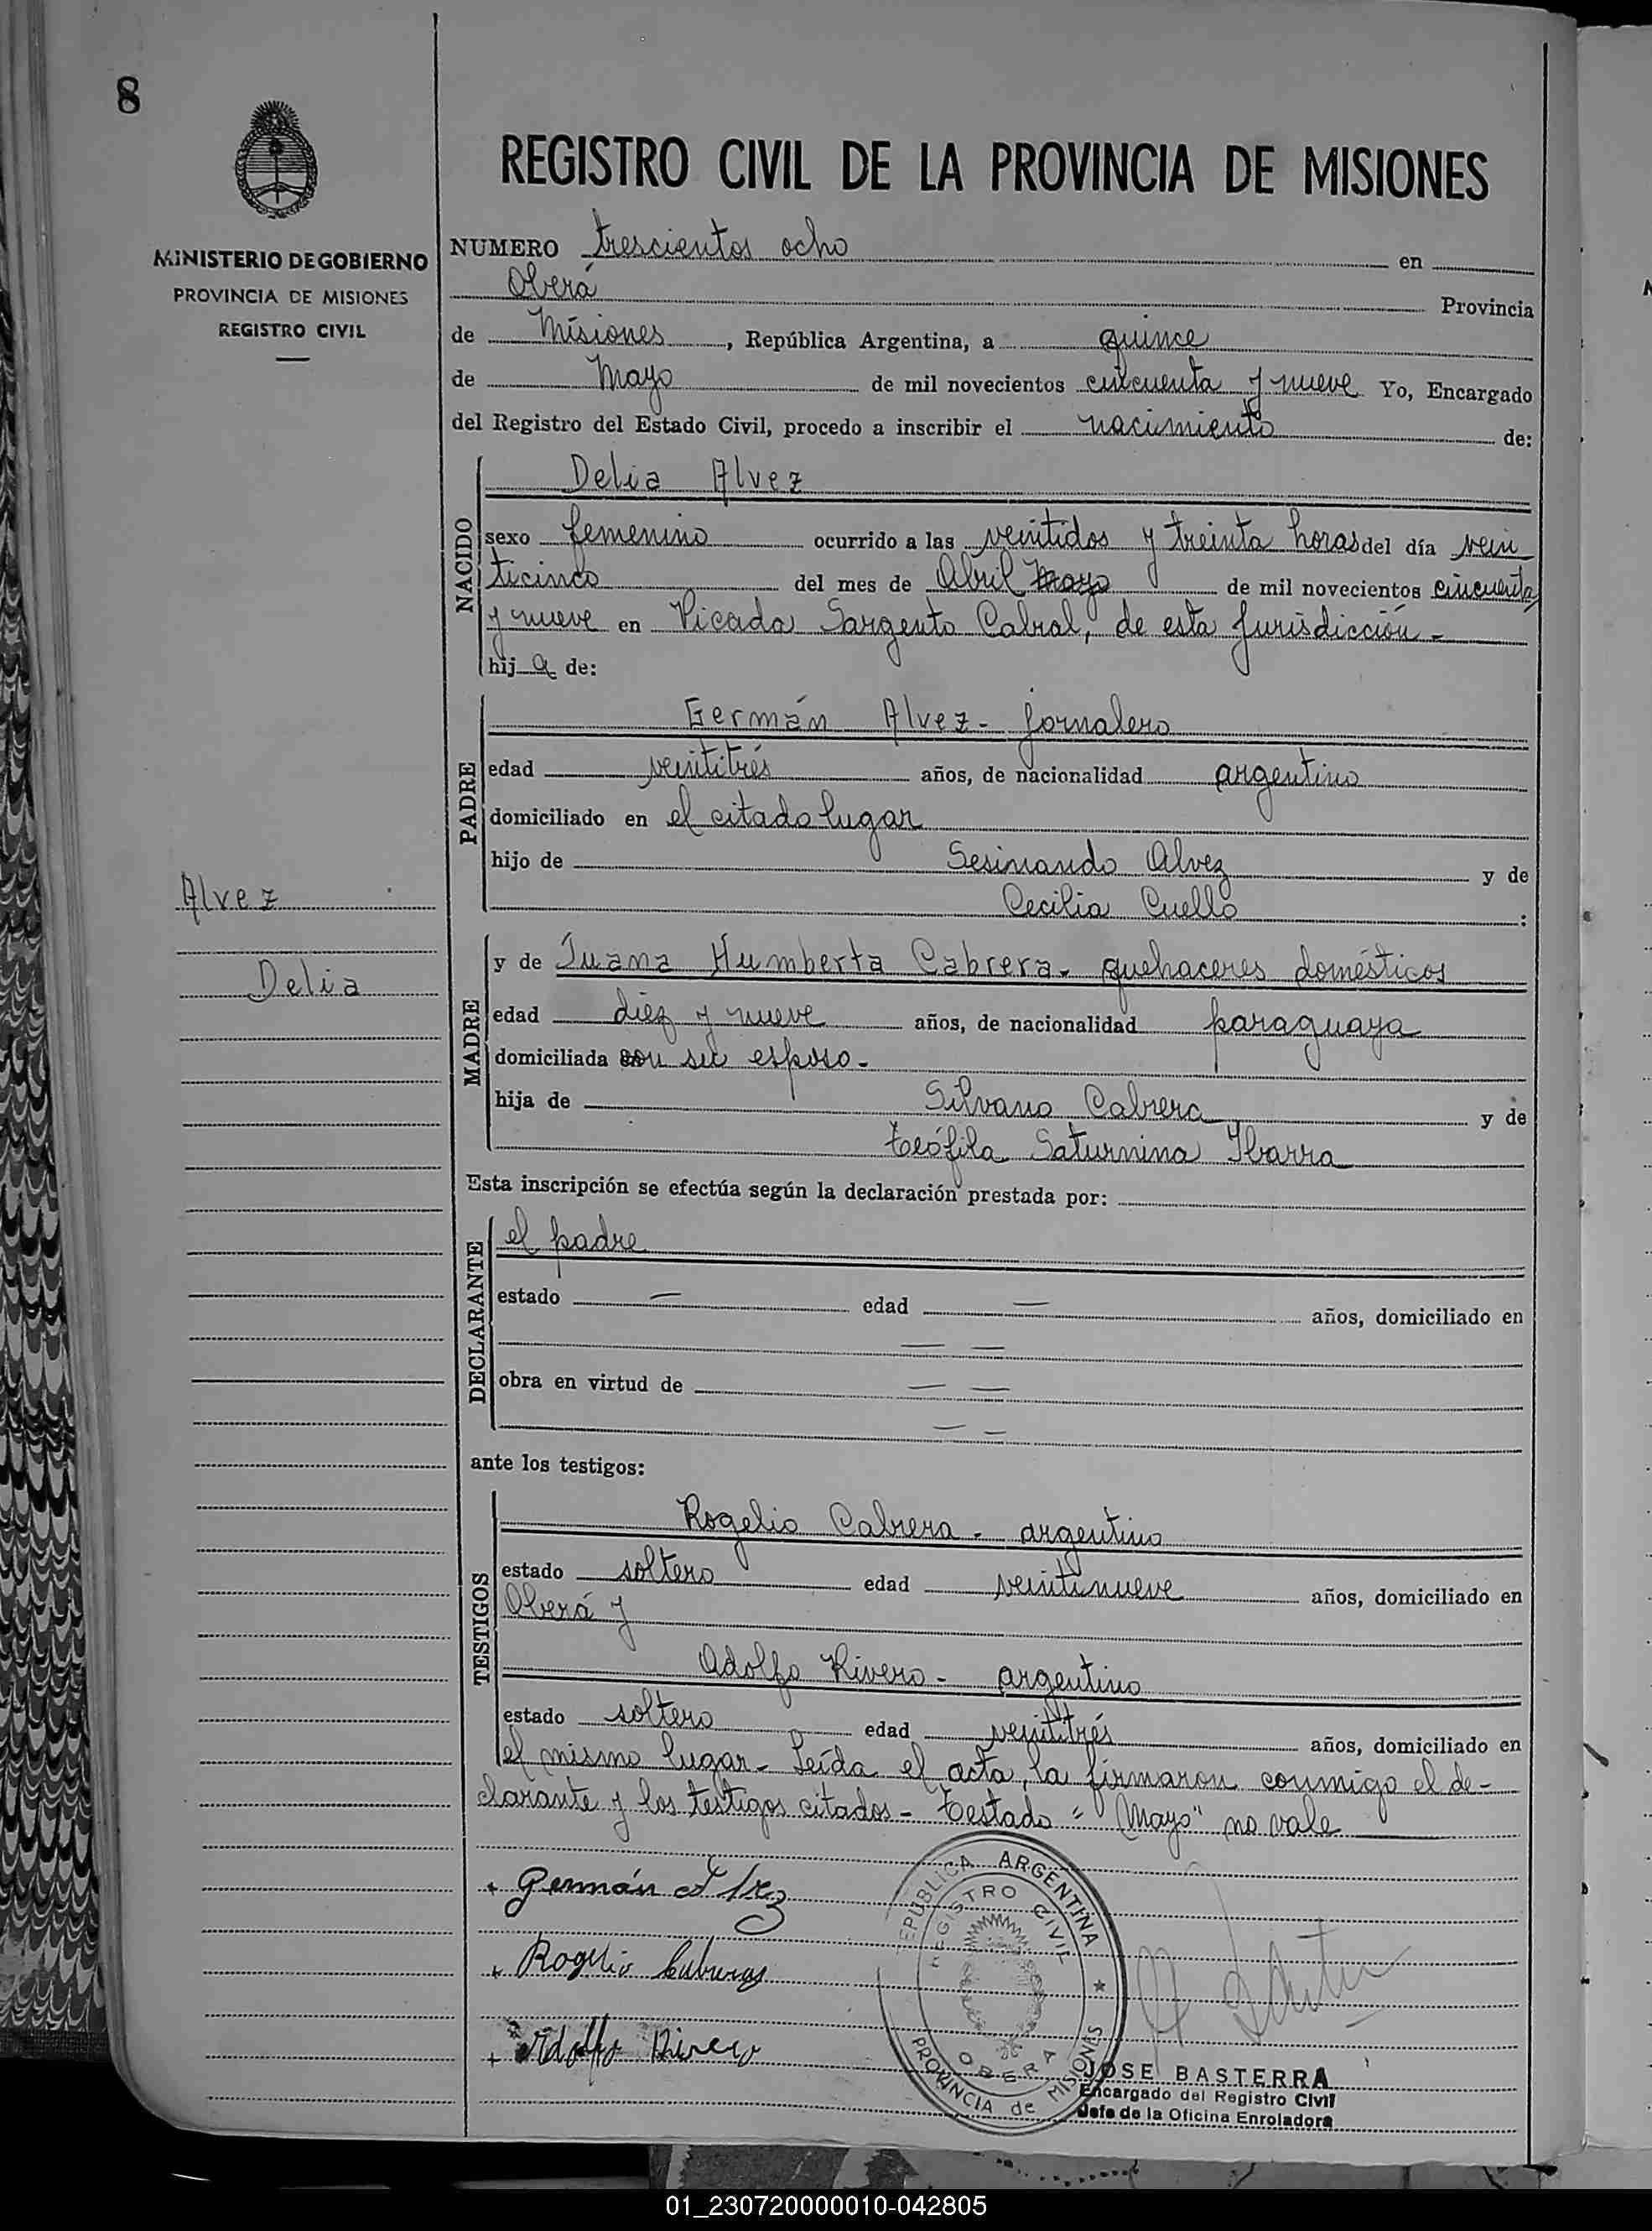 8
REGISTRO CIVIL DE LA PROVINCIA DE MISIONES
MINISTERIO DE GOBIERNO
PROVINCIA DE MISIONES
REGISTRO CIVIL
NUMERO trescientos ocho en
Oberá Provincia
de Misiones, República Argentina, a quince
de Mayo de mil novecientos cincuenta y nueve Yo, Encargado
del Registro del Estado Civil, procedo a inscribir el nacimiento de:
NACIDO
Delia Alvez
sexo femenino ocurrido a las veintidos y treinta horas del día vein
ticinco del mes de Abril Mayo de mil novecientos cincuenta
y nueve en Picada Sargento Cabral, de esta Jurisdicción -
hij a de:
PADRE
Germán Alvez - jornalero
edad veintitrés años, de nacionalidad argentino
domiciliado en el citado lugar
hijo de Sesinando Alvez y de
Cecilia Cuello :
Alvez
Delia
MADRE
y de Juana Humberta Cabrera - quehaceres domésticos
edad diez y nueve años, de nacionalidad paraguaya
domiciliada con su esposo -
hija de Silvano Cabrera y de
Teófila Saturnina Ibarra
Esta inscripción se efectúa según la declaración prestada por:
DECLARANTE
el padre
estado — edad — años, domiciliado en
— —
obra en virtud de — —
— —
ante los testigos:
TESTIGOS
Rogelio Cabrera - argentino
estado soltero edad veintinueve años, domiciliado en
Oberá y
Adolfo Rivero - argentino
estado soltero edad veintitrés años, domiciliado en
el mismo lugar - Leída el acta, la firmaron conmigo el de-
clarante y los testigos citados - Testado "Mayo" no vale
+ Germán Alvez
+ Rogelio Cabrera
+ Adolfo Rivero
REPUBLICA ARGENTINA
REGISTRO CIVIL
OBERA
PROVINCIA de MISIONES
JOSE BASTERRA
Encargado del Registro Civil
Jefe de la Oficina Enroladora
01_230720000010-042805